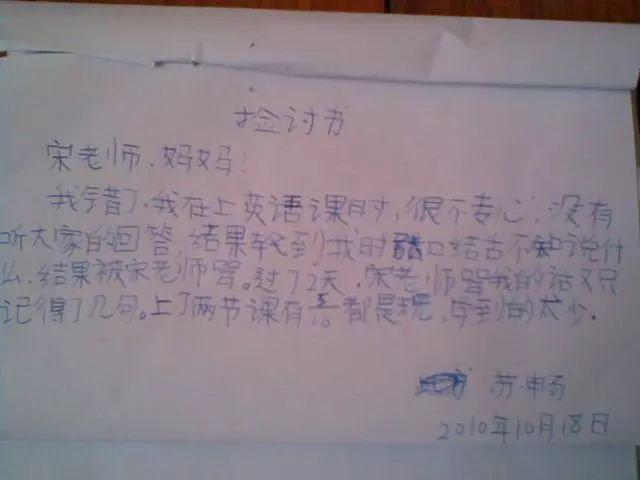 捡讨书
宋老师、妈妈：
我错了，我在上英语课时，很不专心，没有
听大家的回答，结果轮到我时口结舌不知说什
么，结果被宋老师骂。过了2天，宋老师骂我的话又只
记得了几句。上了两节课有都是玩，学到的太少。
苏畅
2010年10月18日